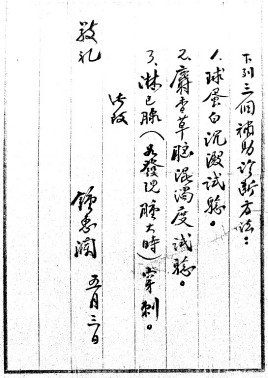 下列三個補助診断方法：
1.球蛋白沉澱试驗。
2.麝香草脑混濁度试驗。
3.淋巴腺（如發現腺大時）穿刺。
此致
敬礼
錦惠潤 五月三日